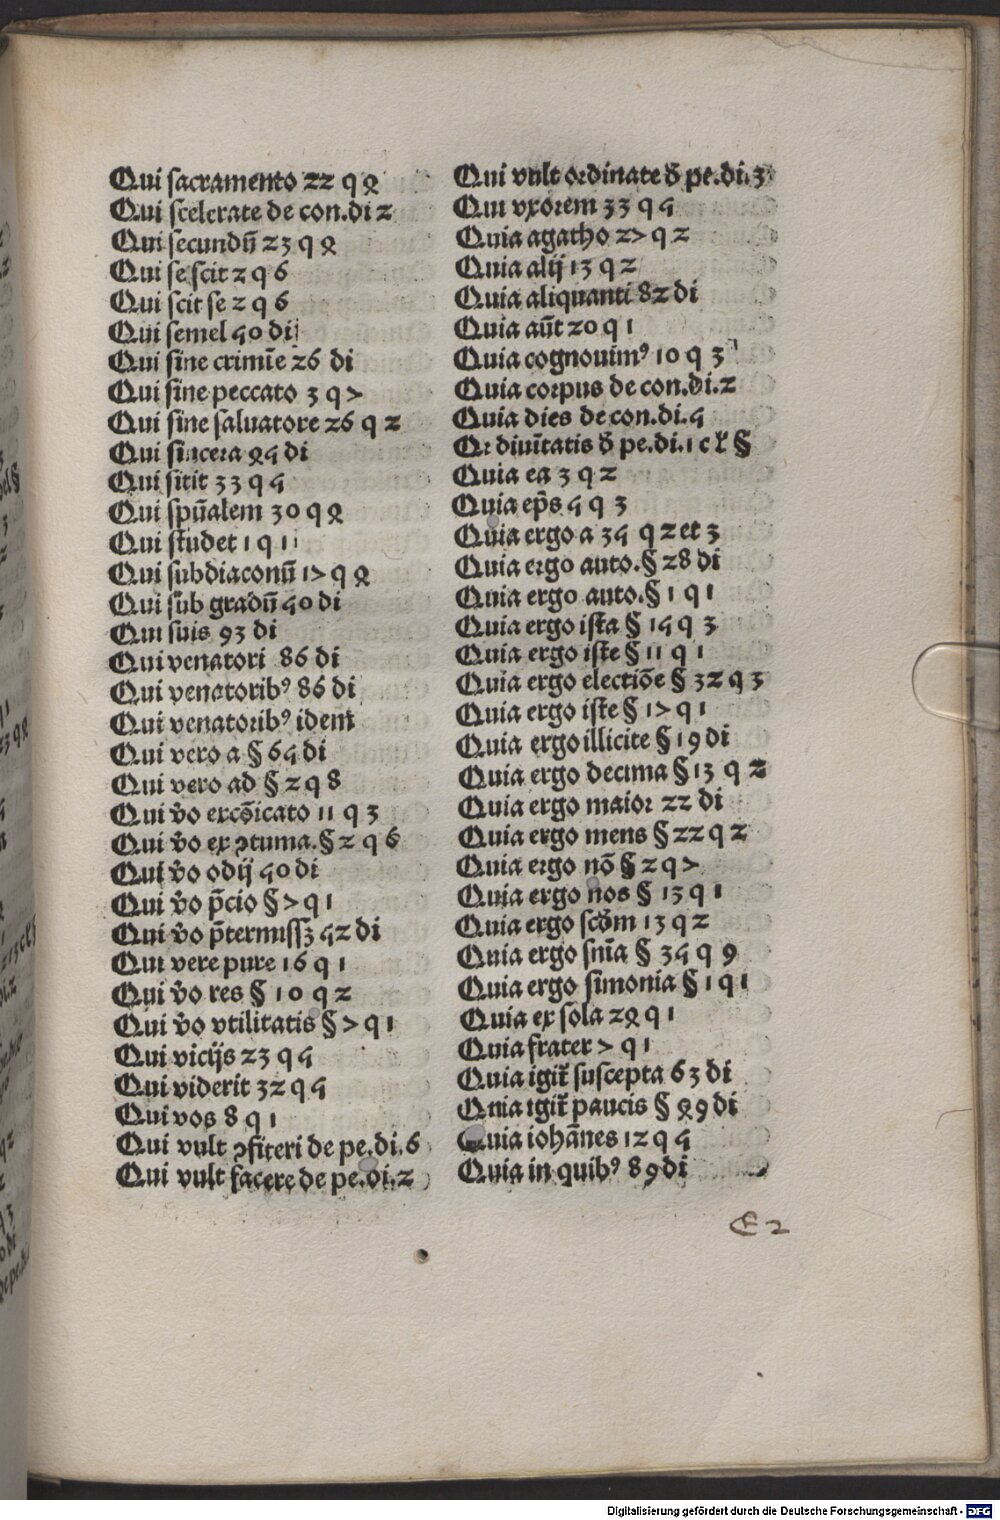 Qui sacramento 22 q ꝝ
Qui scelerate de con.di 2
Qui secundū 23 q ꝝ
Qui se scit 2 q 6
Qui scit se 2 q 6
Qui semel 40 di
Qui sine crimīe 26 di
Qui sine peccato 3 q >
Qui sine saluatore 26 q 2
Qui sincera ꝝ4 di
Qui sitit 33 q 4
Qui spūalem 30 q ꝝ
Qui studet 1 q 1
Qui subdiaconū 1> q ꝝ
Qui sub gradū 40 di
Qui suis 93 di
Qui venatori 86 di
Qui venatoribꝰ 86 di
Qui venatoribꝰ idem
Qui vero a § 64 di
Qui vero ad § 2 q 8
Qui v̄o excōicato 11 q 3
Qui v̄o ex ꝯtuma.§ 2 q 6
Qui v̄o odij 40 di
Qui v̄o p̄cio § > q 1
Qui v̄o p̄termissꝫ 42 di
Qui vere pure 16 q 1
Qui v̄o res § 10 q 2
Qui v̄o vtilitatis § > q 1
Qui vicijs 23 q 4
Qui viderit 32 q 4
Qui vos 8 q 1
Qui vult ꝯfiteri de pe.di.6
Qui vult facere de pe.di.2
Qui vult ordinate d̄ pe.di.3
Qui vxorem 33 q 4
Quia agatho 2> q 2
Quia alij 13 q 2
Quia aliquanti 82 di
Quia aūt 20 q 1
Quia cognouimꝰ 10 q 3
Quia corpus de con.di.2
Quia dies de con.di.4
Qr diuītatis d̄ pe.di.1 c ł §
Quia ea 3 q 2
Quia ep̄s 4 q 3
Quia ergo a 34 q 2 et 3
Quia ergo auto.§ 28 di
Quia ergo auto.§ 1 q 1
Quia ergo ista § 14 q 3
Quia ergo iste § 11 q 1
Quia ergo electiōe § 32 q 3
Quia ergo iste § 1> q 1
Quia ergo illicite § 19 di
Quia ergo decima § 13 q 2
Quia ergo maior 22 di
Quia ergo mens § 22 q 2
Quia ergo nō § 2 q >
Quia ergo nos § 13 q 1
Quia ergo scd̄m 13 q 2
Quia ergo snīa § 34 q 9
Quia ergo simonia § 1 q 1
Quia ex sola 2ꝝ q 1
Quia frater > q 1
Quia igit̄ suscepta 63 di
Qnia igit̄ paucis § ꝝ9 di
Quia iohānes 12 q 4
Quia in quibꝰ 89 di
E 2
Digitalisierung gefördert durch die Deutsche Forschungsgemeinschaft - DFG